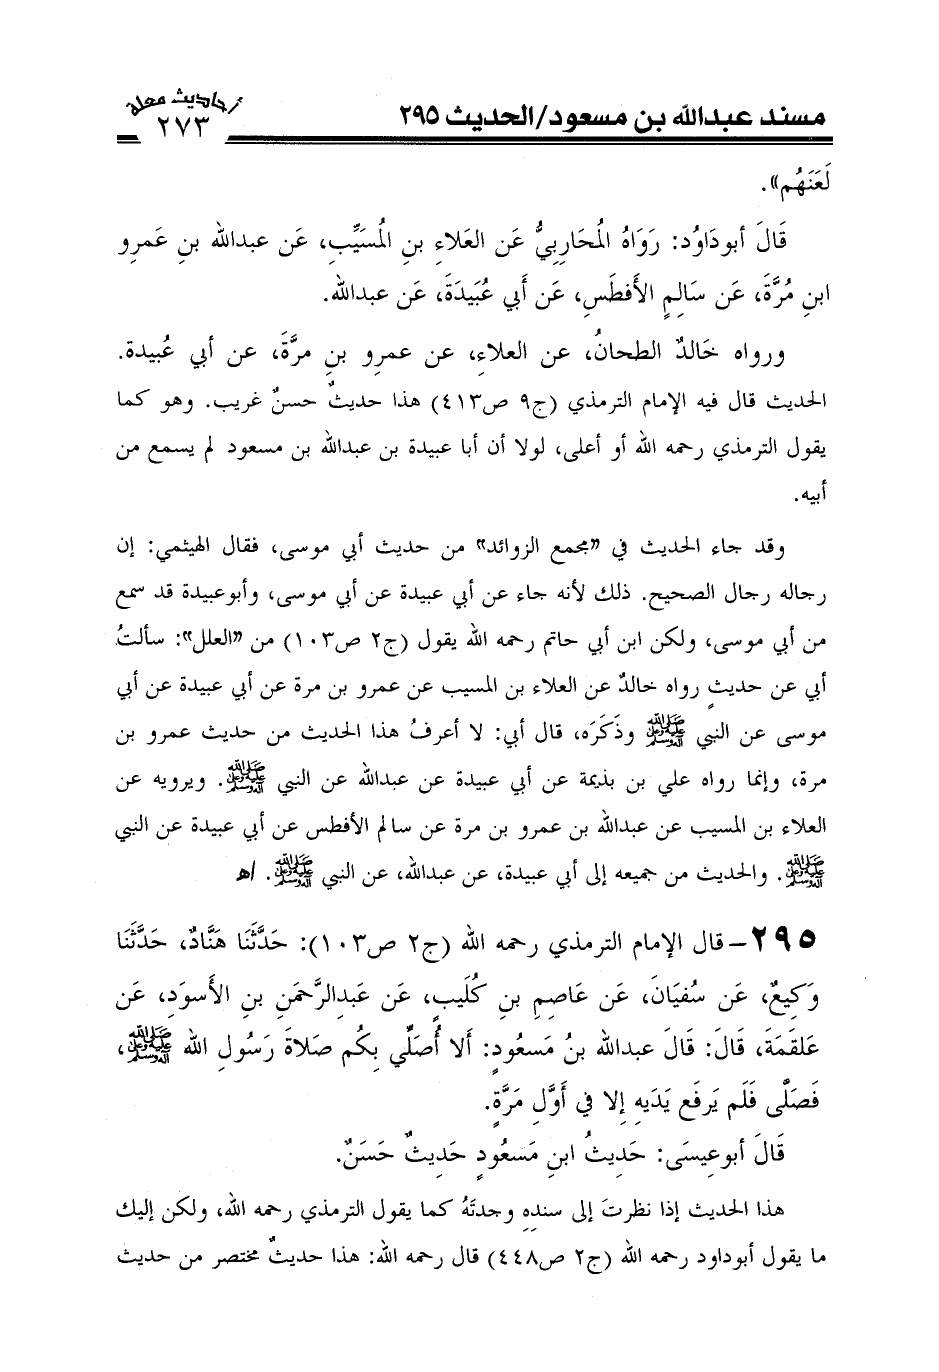 أحاديث معلة
٢٧٣
مسند عبدالله بن مسعود/الحديث ٢٩٥
لَعَنَهُم».
قَالَ أبودَاوُد: رَوَاهُ المُحَارِبِيُّ عَن العَلاءِ بنِ المُسَيِّبِ، عَن عبدالله بنِ عَمرِو
ابنِ مُرَّةَ، عَن سَالِمٍ الأَفطَسِ، عَن أَبي عُبَيدَةَ، عَن عبدالله.
ورواه خَالدٌ الطحانُ، عن العلاءِ، عن عمرو بنِ مرَّةَ، عن أبي عُبيدة.
الحديث قال فيه الإمام الترمذي (ج٩ ص٤١٣) هذا حديثٌ حسنٌ غريب. وهو كما
يقول الترمذي رحمه الله أو أعلى، لولا أن أبا عبيدة بن عبدالله بن مسعود لم يسمع من
أبيه.
وقد جاء الحديث في «مجمع الزوائد» من حديث أبي موسى، فقال الهيثمي: إن
رجاله رجال الصحيح. ذلك لأنه جاء عن أبي عبيدة عن أبي موسى، وأبوعبيدة قد سمع
من أبي موسى، ولكن ابن أبي حاتم رحمه الله يقول (ج٢ ص١٠٣) من «العلل»: سألتُ
أبي عن حديثٍ رواه خالدٌ عن العلاء بن المسيب عن عمرو بن مرة عن أبي عبيدة عن أبي
موسى عن النبي ﷺ وذَكَرَه، قال أبي: لا أعرفُ هذا الحديث من حديث عمرو بن
مرة، وإنما رواه علي بن بذيمة عن أبي عبيدة عن عبدالله عن النبي ﷺ. ويرويه عن
العلاء بن المسيب عن عبدالله بن عمرو بن مرة عن سالم الأفطس عن أبي عبيدة عن النبي
ﷺ. والحديث من جميعه إلى أبي عبيدة، عن عبدالله، عن النبي ﷺ. اهـ
٢٩٥- قال الإمام الترمذي رحمه الله (ج٢ ص١٠٣): حَدَّثَنَا هَنَّادٌ، حَدَّثَنَا
وَكِيعٌ، عَن سُفيَانَ، عَن عَاصِمِ بنِ كُلَيبٍ، عَن عَبدِالرَّحمَنِ بنِ الأَسوَدِ، عَن
عَلقَمَةَ، قَالَ: قَالَ عبدالله بنُ مَسعُودٍ: أَلا أُصَلِّي بِكُم صَلاةَ رَسُولِ الله ﷺ،
فَصَلَّى فَلَم يَرفَع يَدَيهِ إِلا في أَوَّلِ مَرَّةٍ.
قَالَ أبوعِيسَى: حَدِيثُ ابنِ مَسعُودٍ حَدِيثٌ حَسَنٌ.
هذا الحديث إذا نظرتَ إلى سندِهِ وجدتَهُ كما يقول الترمذي رحمه الله، ولكن إليك
ما يقول أبوداود رحمه الله (ج٢ ص٤٤٨) قال رحمه الله: هذا حديثٌ مختصر من حديث